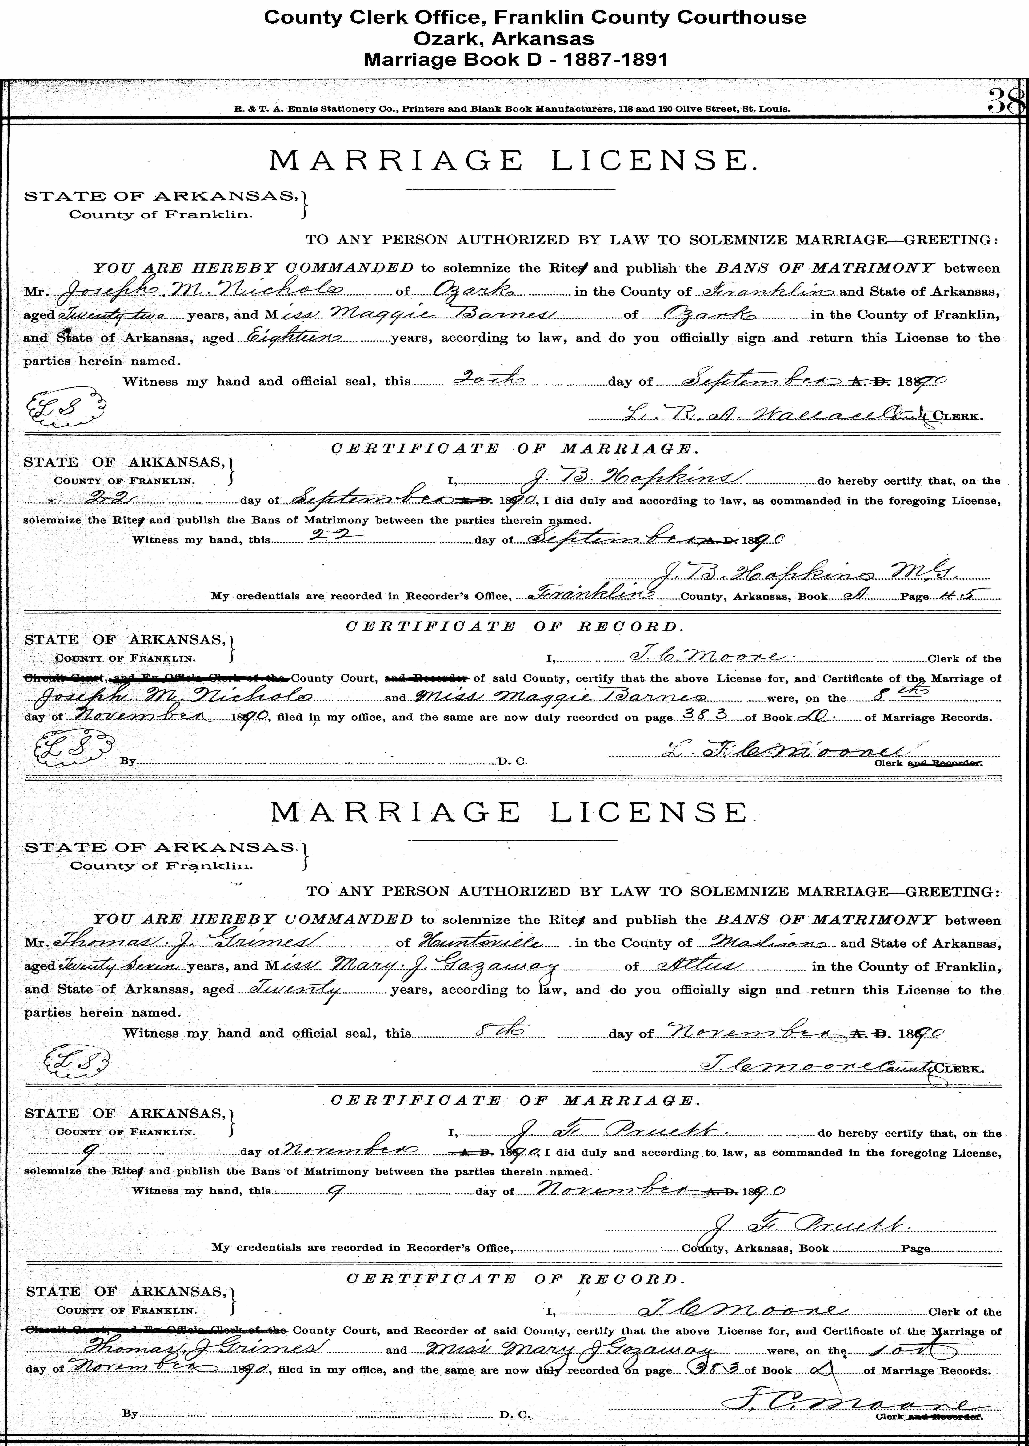 County Clerk Office, Franklin County Courthouse
Ozark, Arkansas
Marriage Book D - 1887-1891
38
R. & T. A. Ennis Stationery Co., Printers and Blank Book Manufacturers, 118 and 120 Olive Street, St. Louis.
MARRIAGE LICENSE.
STATE OF ARKANSAS,
County of Franklin.
TO ANY PERSON AUTHORIZED BY LAW TO SOLEMNIZE MARRIAGE—GREETING:
YOU ARE HEREBY COMMANDED to solemnize the Rite and publish the BANS OF MATRIMONY between
Mr. Joseph M. Nichols of Ozark in the County of Franklin and State of Arkansas,
aged Twenty two years, and Miss Maggie Barnes of Ozark in the County of Franklin,
and State of Arkansas, aged Eighteen years, according to law, and do you officially sign and return this License to the
parties herein named.
Witness my hand and official seal, this 20th day of September A. D. 1890
L S
L. R. A. Wallace County CLERK.
CERTIFICATE OF MARRIAGE.
STATE OF ARKANSAS,
COUNTY OF FRANKLIN.
I, J. B. Hopkins do hereby certify that, on the
22 day of September A. D. 1890, I did duly and according to law, as commanded in the foregoing License,
solemnize the Rite and publish the Bans of Matrimony between the parties therein named.
Witness my hand, this 22 day of September A. D. 1890
J. B. Hopkins M.G.
My credentials are recorded in Recorder's Office, Franklin County, Arkansas, Book A Page 45
CERTIFICATE OF RECORD.
STATE OF ARKANSAS,
COUNTY OF FRANKLIN.
I, T. C. Moore Clerk of the
Circuit Court, and Ex-Officio Clerk of the County Court, and Recorder of said County, certify that the above License for, and Certificate of the Marriage of
Joseph M. Nichols and Miss Maggie Barnes were, on the 8th
day of November 1890, filed in my office, and the same are now duly recorded on page 383 of Book D of Marriage Records.
L S
T C Moore
By D. C. Clerk and Recorder.
MARRIAGE LICENSE
STATE OF ARKANSAS,
County of Franklin.
TO ANY PERSON AUTHORIZED BY LAW TO SOLEMNIZE MARRIAGE—GREETING:
YOU ARE HEREBY COMMANDED to solemnize the Rite and publish the BANS OF MATRIMONY between
Mr. Thomas J. Grimes of Huntsville in the County of Madison and State of Arkansas,
aged Twenty Seven years, and Miss Mary J. Gazaway of Altus in the County of Franklin,
and State of Arkansas, aged Twenty years, according to law, and do you officially sign and return this License to the
parties herein named.
Witness my hand and official seal, this 8th day of November A. D. 1890
L S
T C Moore County CLERK.
CERTIFICATE OF MARRIAGE.
STATE OF ARKANSAS,
COUNTY OF FRANKLIN.
I, J F Pruett do hereby certify that, on the
9 day of November A. D. 1890, I did duly and according to law, as commanded in the foregoing License,
solemnize the Rite and publish the Bans of Matrimony between the parties therein named.
Witness my hand, this 9 day of November A. D. 1890
J F Pruett
My credentials are recorded in Recorder's Office, County, Arkansas, Book Page
CERTIFICATE OF RECORD.
STATE OF ARKANSAS,
COUNTY OF FRANKLIN.
I, T C Moore Clerk of the
Circuit Court, and Ex-Officio Clerk of the County Court, and Recorder of said County, certify that the above License for, and Certificate of the Marriage of
Thomas J Grimes and Miss Mary J Gozaway were, on the 10th
day of November 1890, filed in my office, and the same are now duly recorded on page 383 of Book D of Marriage Records.
T. C. Moore
By D. C. Clerk and Recorder.